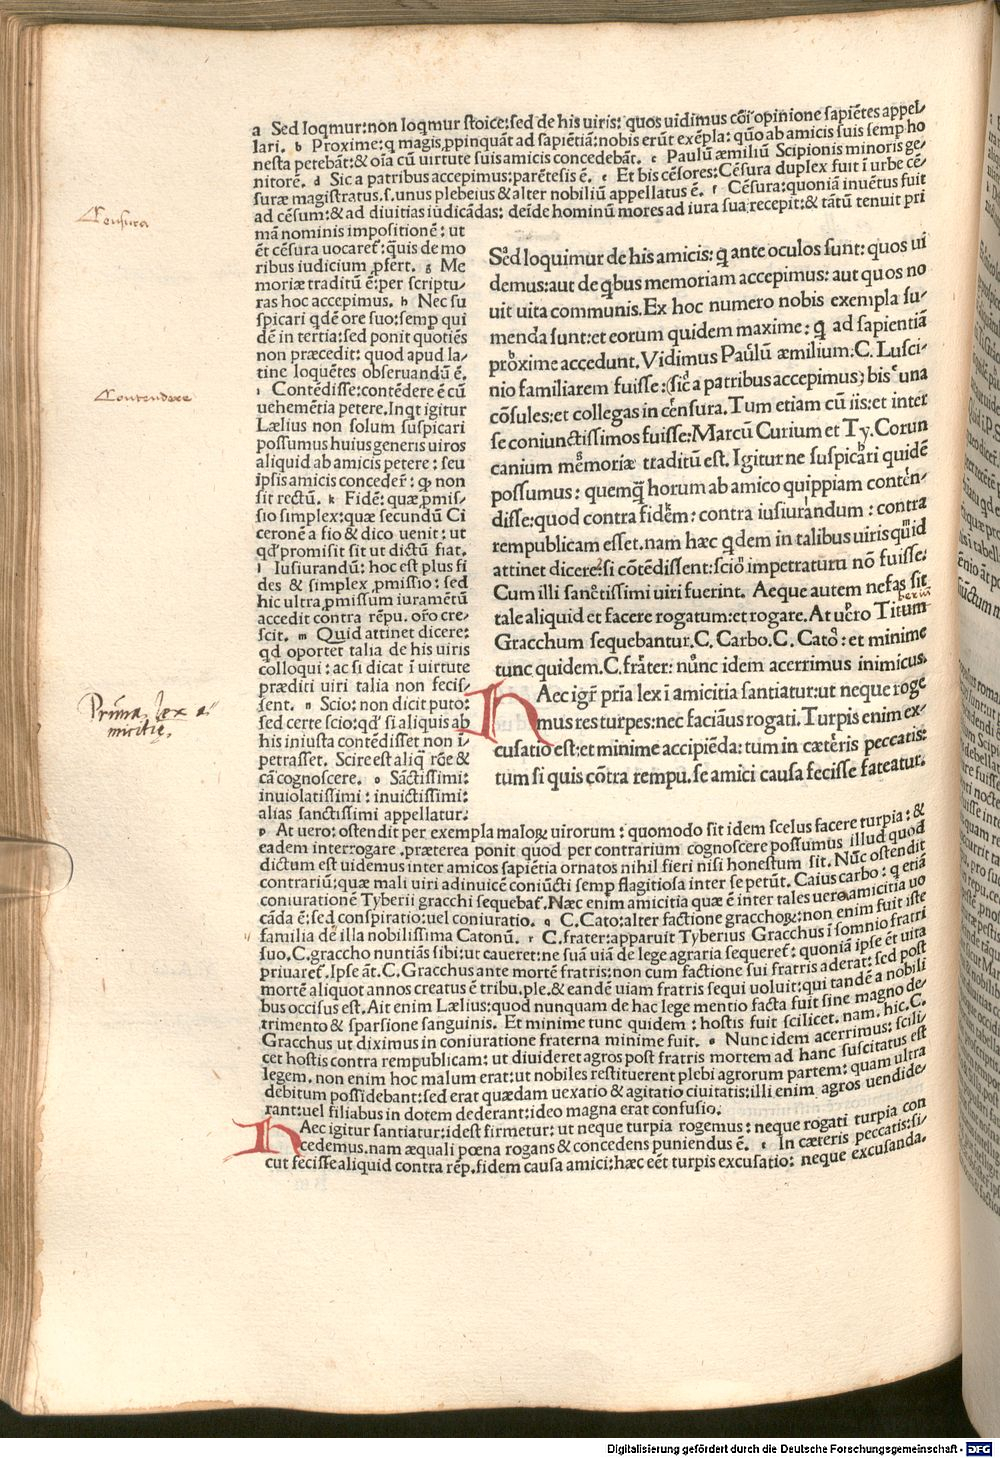 a Sed loqmur: non loqmur stoice: sed de his uiris: quos uidimus cōi opinione sapiētes appel/
lari. b Proxime: q magis ꝓpinquāt ad sapiētiā: nobis erūt exēpla: quō ab amicis suis semp ho
nesta petebāt: & oīa cū uirtute suis amicis concedebāt. c Paulū æmiliū Scipionis minoris ge/
nitorē. d Sic a patribus accepimus: parētesis ē. e Et bis cēsores: Cēsura duplex fuit ī urbe cē/
suræ magistratus. s. unus plebeius & alter nobiliū appellatus ē. f Cēsura: quoniā inuētus fuit
ad cēsum: & ad diuitias iudicādas: deīde hominū mores ad iura sua recepit: & tātū tenuit pri
mā nominis impositionē: ut
ēt cēsura uocaret: quis de mo
ribus iudicium ꝓfert. g Me
moriæ traditū ē: per scriptu/
ras hoc accepimus. h Nec su
spicari qdē ore suo: semp qui
dē in tertia: sed ponit quotiēs
non præcedit: quod apud la/
tine loquētes obseruandū ē.
i Contēdisse: contēdere ē cū
uehemētia petere. Inqt igitur
Lælius non solum suspicari
possumus huius generis uiros
aliquid ab amicis petere: seu
ipsis amicis conceder: ꝙ non
sit rectū. k Fidē: quæ ꝓmis/
sio simplex: quæ secundū Ci
ceronē a fio & dico uenit: ut
qd promisit sit ut dictū fiat.
l Iusiurandū: hoc est plus fi
des & simplex ꝓmissio: sed
hic ultra ꝓmissum iuramētū
accedit contra rēpu. oro cre/
scit. m Quid attinet dicere:
qd oportet talia de his uiris
colloqui: ac si dicat ī uirtute
præditi uiri talia non fecis/
sent. n Scio: non dicit puto:
sed certe scio: qd si aliquis ab
his iniusta contēdisset non ī/
petrasset. Scire est aliq rōe &
cā cognoscere. o Sāctissimi:
inuiolatissimi: inuictissimi:
alias sanctissimi appellatur.
Censura
Contendere
Prima lex a/
micitię.
Sed loquimur de his amicis: q ante oculos sunt: quos ui
demus: aut de qbus memoriam accepimus: aut quos no
uit uita communis. Ex hoc numero nobis exempla su/
menda sunt: et eorum quidem maxime: q ad sapientiā
proxime accedunt. Vidimus Paulū æmilium. C. Lusci/
nio familiarem fuisse: (sic a patribus accepimus) bis una
cōsules: et collegas in censura. Tum etiam cū iis: et inter
se coniunctissimos fuisse: Marcū Curium et Ty. Corun
canium memoriæ traditū est. Igitur ne suspicari quidē
possumus: quemq horum ab amico quippiam conten/
disse: quod contra fidem: contra iusiurandum: contra
rempublicam esset. nam hæc qdem in talibus uiris quid
attinet dicere: si cōtēdissent: scio impetraturū nō fuisse:
Cum illi sanctissimi uiri fuerint. Aeque autem nefas sit
tale aliquid et facere rogatum: et rogare. At uero Titum
Gracchum sequebantur. C. Carbo. C. Cato: et minime
tunc quidem. C. frater: nunc idem acerrimus inimicus.
HAec igr pria lex ī amicitia santiatur: ut neque roge
mus res turpes: nec faciāus rogati. Turpis enim ex/
cusatio est: et minime accipiēda: tum in cæteris peccatis:
tum si quis cōtra rempu. se amici causa fecisse fateatur.
p At uero: ostendit per exempla maloꝝ uirorum: quomodo sit idem scelus facere turpia: &
eadem interrogare. præterea ponit quod per contrarium cognoscere possumus illud quod
dictum est uidemus inter amicos sapiētia ornatos nihil fieri nisi honestum sit. Nūc ostendit
contrariū: quæ mali uiri adinuicē coniūcti semp flagitiosa inter se petūt. Caius carbo: q etiā
coniurationē Tyberii gracchi sequebat. Næc enim amicitia quæ ē inter tales uero amicitia uo
cāda ē: sed conspiratio: uel coniuratio. q C. Cato: alter factione gracchoꝝ: non enim fuit iste
familia de illa nobilissima Catonū. r C. frater: apparuit Tyberius Gracchus ī somnio fratri
suo. C. graccho nuntiās sibi: ut caueret: ne suā uiā de lege agraria sequeret: quoniā ipse ēt uita
priuaret. Ipse āt. C. Gracchus ante mortē fratris: non cum factione sui fratris aderat: sed post
mortē aliquot annos creatus ē tribu. ple. & eandē uiam fratris sequi uoluit: qui tandē a nobili
bus occisus est. Ait enim Lælius: quod nunquam de hac lege mentio facta fuit sine magno de/
trimento & sparsione sanguinis. Et minime tunc quidem: hostis fuit scilicet. nam. hic. C.
Gracchus ut diximus in coniuratione fraterna minime fuit. s Nunc idem acerrimus: scili/
cet hostis contra rempublicam: ut diuideret agros post fratris mortem ad hanc suscitatus est
legem. non enim hoc malum erat: ut nobiles restituerent plebi agrorum partem: quam ultra
debitum possidebant: sed erat quædam uexatio & agitatio ciuitatis: illi enim agros uendide/
rant: uel filiabus in dotem dederant: ideo magna erat confusio.
HAec igitur santiatur: idest firmetur: ut neque turpia rogemus: neque rogati turpia con
cedemus. nam æquali pœna rogans & concedens puniendus ē. t In cæteris peccatis: si/
cut fecisse aliquid contra rēp. fidem causa amici: hæc eēt turpis excusatio: neque excusanda.
Digitalisierung gefördert durch die Deutsche Forschungsgemeinschaft - DFG